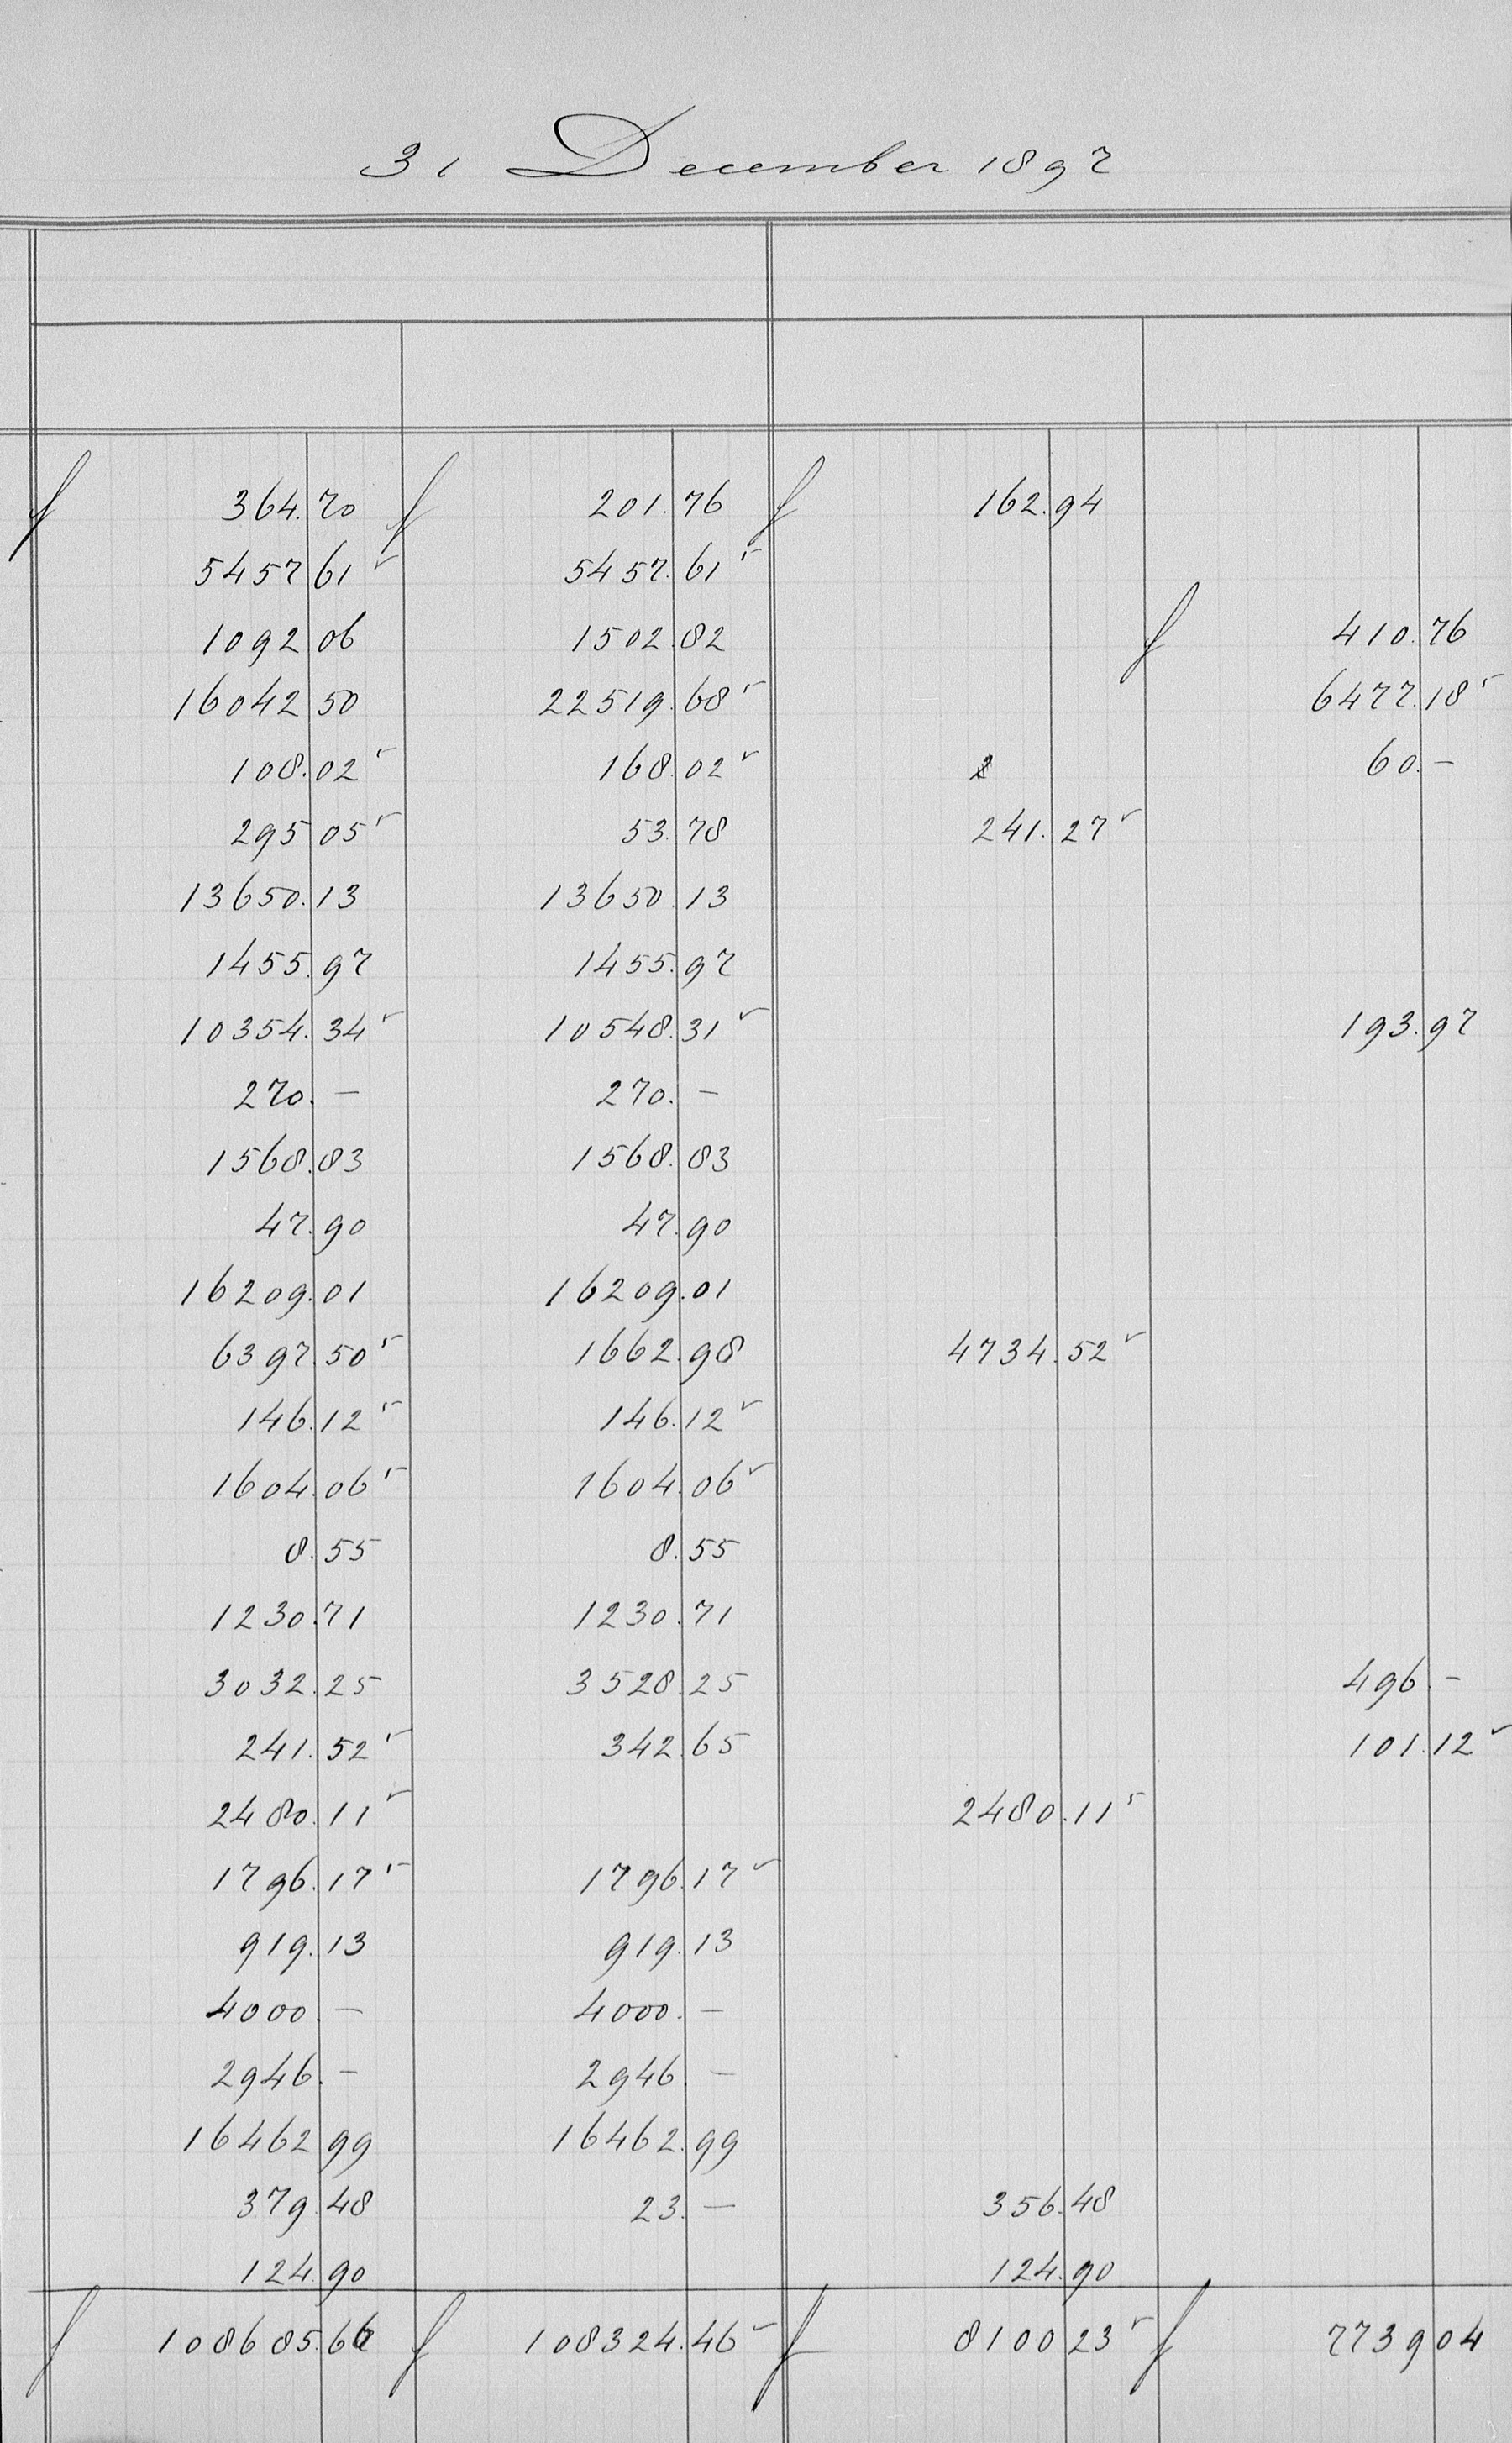 31 December 1897
f 364.70 f 201.76 f 162.94
5457 61 5457.61
1092 06 1502.82 f 410.76
16042 50 22519.68 6477.18
108.02 168.02 60.-
295 05 53.78 241.27
13650.13 13650.13
1455.97 1455.97
10354.34 10548.31 193.97
270.- 270.-
1568.83 1568.83
47.90 47.90
16209.01 16209.01
6397.50 1662.98 4734.52
146.12 146.12
1604.06 1604.06
8.55 8.55
1230.71 1230.71
3032.25 3528.25 496.-
241.52 342.65 101.12
2480.11 2480.11
1796.17 1796.17
919.13 919.13
4000.- 4000.-
2946.- 2946.-
16462 99 16462.99
379.48 23.- 356.48
124.90 124.90
f 108685.66 f 108324.46 f 8100 23 f 7739 04